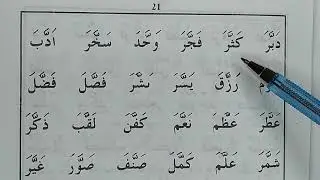 21
دَبَّرَ كَثَّرَ فَجَّرَ وَحَّدَ سَخَّرَ اَدَّبَ
رَزَّقَ يَسَّرَ بَشَّرَ فَصَّلَ فَضَّلَ
عَطَّرَ عَظَّمَ نَعَّمَ كَفَّنَ لَقَّبَ ذَكَّرَ
شَمَّرَ عَلَّمَ كَمَّلَ صَنَّفَ صَوَّرَ غَيَّرَ